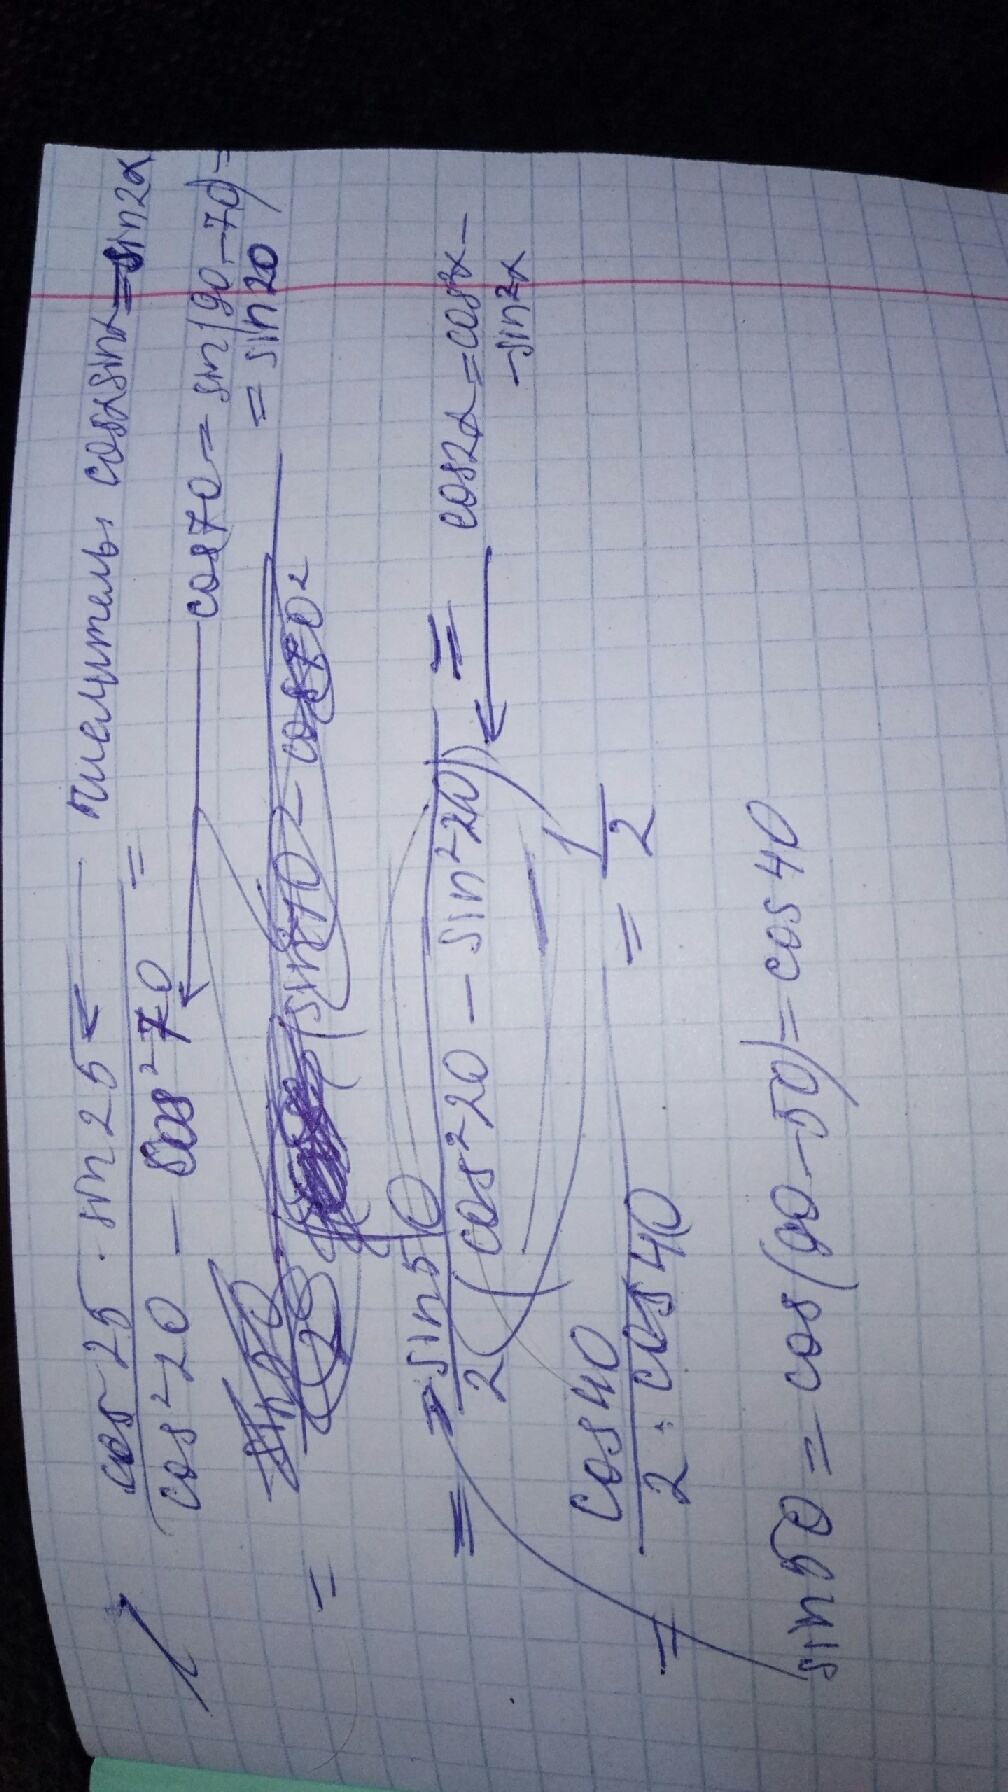 1) cos 25 · sin 25 / cos² 20 − cos² 70 = ← числитель cosα sinα = sin2α
cos 70 = sin(90 − 70) =
= sin 20
=
= sin 50 / 2(cos² 20 − sin² 20) = cos2α = cos²α −
− sin²α
= cos 40 / 2 · cos 40 = 1/2
sin 50 = cos(90 − 50) = cos 40